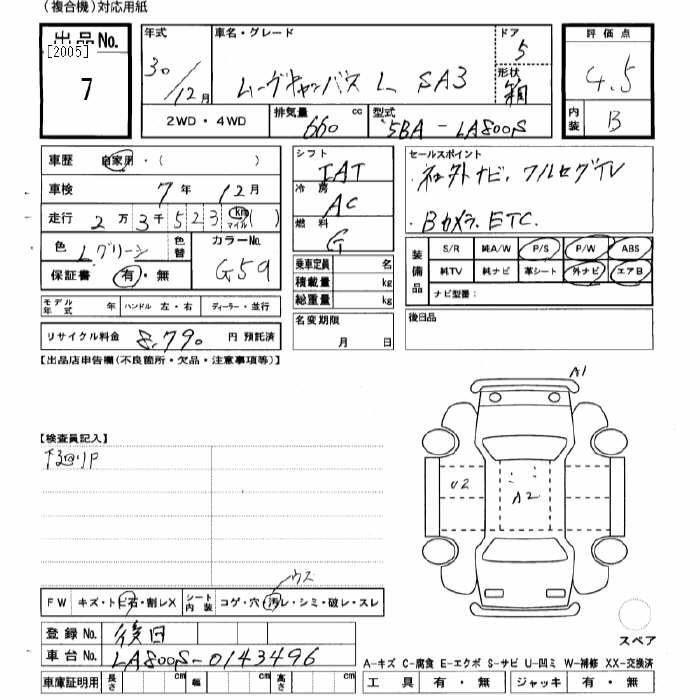 （複合機）対応用紙
出品No.
[2005]
7
年式
30/12月
車名・グレード
ムーヴキャンバス L SA3
ドア
5
形状
箱
評価点
4.5
内装
B
2WD・4WD
排気量
660 cc
型式
5BA-LA800S
車歴 自家用・（ ）
車検 7年12月
走行 2万3千523 km マイル ( )
色 Lグリーン 色替
カラーNo. G59
保証書 有・無
モデル年式 年 ハンドル 左・右 ディーラー・並行
リサイクル料金 8,790 円 預託済
シフト
IAT
冷房
AC
燃料
G
乗車定員 名
積載量 kg
総重量 kg
名変期限
月 日
セールスポイント
・社外ナビ、フルセグTV
・Bカメラ、ETC
装備品
S/R 純A/W P/S P/W ABS
純TV 純ナビ 革シート 外ナビ エアB
ナビ型番：
後日品
【出品店申告欄(不良箇所・欠品・注意事項等)】
【検査員記入】
下回りP
A1
U2
A2
ウス
FW キズ・ト ビ石・割レX シート内装 コゲ・穴 汚レ・シミ・破レ・スレ
登録No. 後日
車台No. LA800S-0143496
車庫証明用 長さ cm 幅 cm 高さ cm
スペア
A-キズ C-腐食 E-エクボ S-サビ U-凹ミ W-補修 XX-交換済
工具 有・無 ジャッキ 有・無